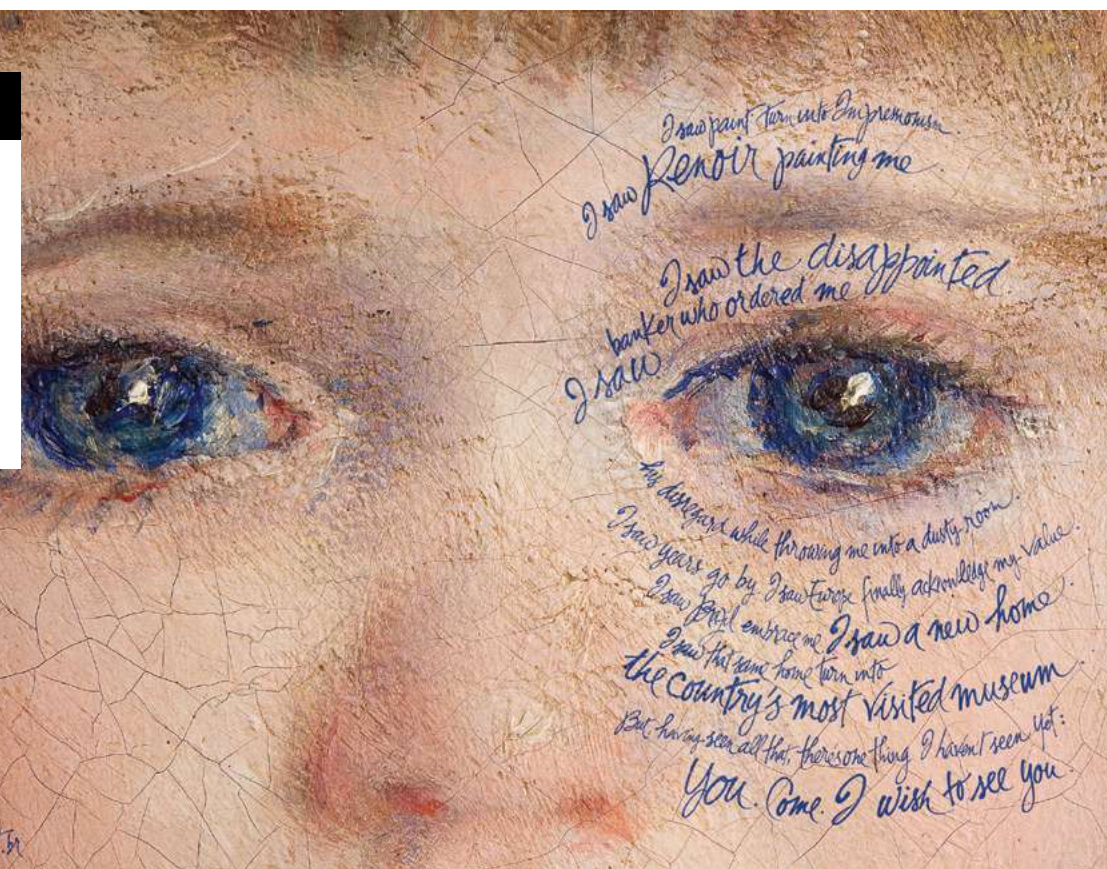 I saw paint turn into Impressionism
I saw Renoir painting me
I saw the disappointed
banker who ordered me
I saw
his disregard while throwing me into a dusty room.
I saw years go by I saw Europe finally acknowledge my value.
I saw Brazil embrace me I saw a new home.
I saw that same home turn into
the country's most visited museum.
But having seen all that, theres one thing I haven't seen yet:
You. Come. I wish to see you.
.br